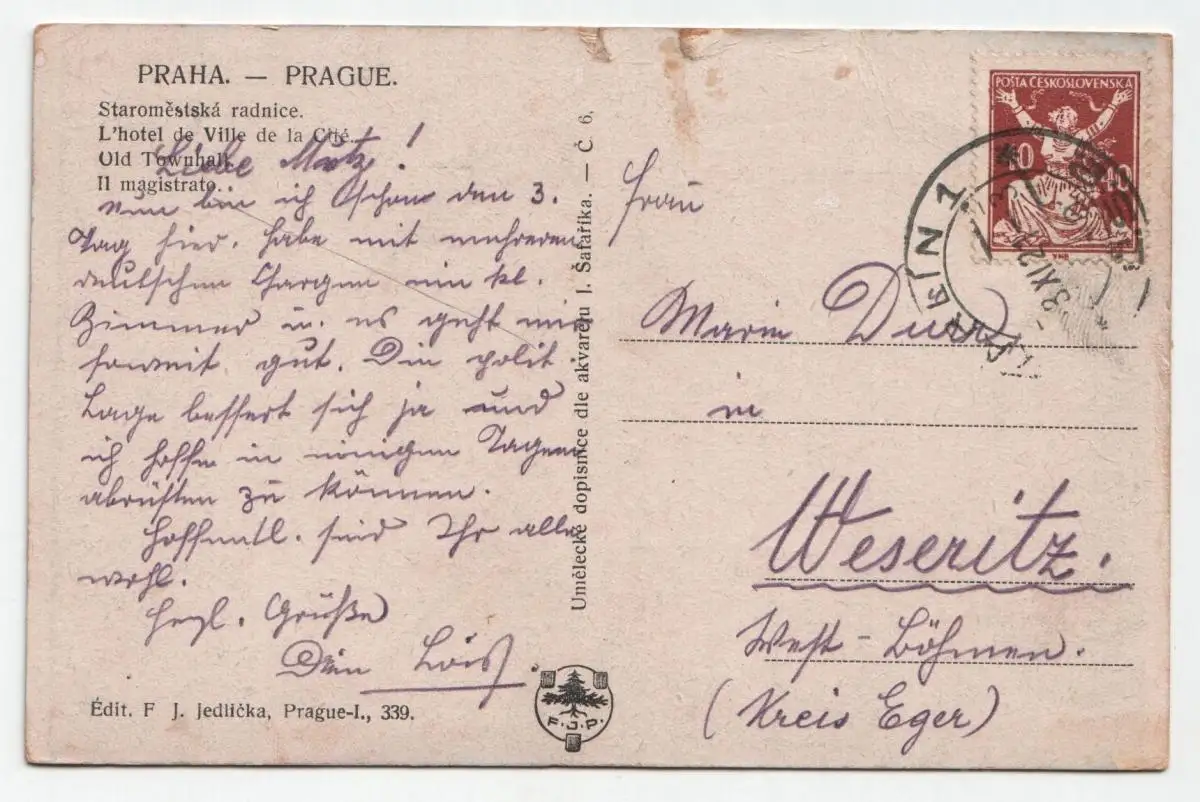 PRAHA. — PRAGUE.
Staroměstská radnice.
L'hotel de Ville de la Cité.
Old Townhall.
Il magistrato.
Liebe Mutz!
Nun bin ich schon den 3.
Tag hier, habe mit mehreren
deutschen Chargen ein kl.
Zimmer u. es geht mir
soweit gut. Die polit
Lage bessert sich ja und
ich hoffe in einigen Tagen
abrüsten zu können.
Hoffentl. sind Ihr alle
wohl.
Herzl. Grüße
Dein Lois.
Édit. F J. Jedlička, Prague-I., 339.
F.J.P.
Umělecké dopisnice dle akvarelu J. Šafaříka. — Č. 6.
POŠTA ČESKOSLOVENSKÁ
40 40
KARLÍN 1
3 XI 21
Frau
Marie
in
Weseritz.
West-Böhmen.
(Kreis Eger)